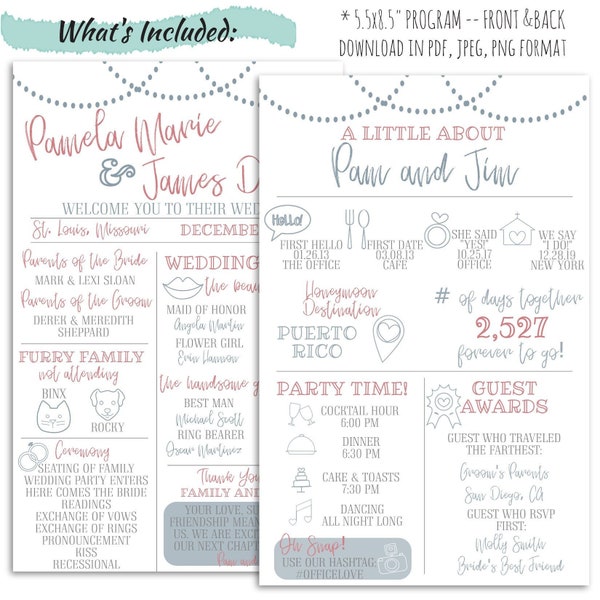 What's Included:
* 5.5x8.5" PROGRAM -- FRONT & BACK
DOWNLOAD IN PDF, JPEG, PNG FORMAT
Pamela Marie
& James D
WELCOME YOU TO THEIR WED
St. Louis, Missouri
DECEMBER
Parents of the Bride
MARK & LEXI SLOAN
Parents of the Groom
DEREK & MEREDITH
SHEPPARD
FURRY FAMILY
not attending
BINX
ROCKY
Ceremony
SEATING OF FAMILY
WEDDING PARTY ENTERS
HERE COMES THE BRIDE
READINGS
EXCHANGE OF VOWS
EXCHANGE OF RINGS
PRONOUNCEMENT
KISS
RECESSIONAL
WEDDING
the beau
MAID OF HONOR
Angela Martin
FLOWER GIRL
Erin Hannon
the handsome g
BEST MAN
Michael Scott
RING BEARER
Oscar Martinez
Thank You
FAMILY AN
YOUR LOVE, S
FRIENDSHIP MEAN
US. WE ARE EXC
OUR NEXT CHAPT
Pam and
A LITTLE ABOUT
Pam and Jim
Hello!
FIRST HELLO
01.26.13
THE OFFICE
FIRST DATE
03.08.13
CAFE
SHE SAID
"YES!"
10.25.17
OFFICE
WE SAY
"I DO!"
12.28.19
NEW YORK
Honeymoon
Destination
PUERTO
RICO
# of days together
2,527
forever to go!
PARTY TIME!
COCKTAIL HOUR
6:00 PM
DINNER
6:30 PM
CAKE & TOASTS
7:30 PM
DANCING
ALL NIGHT LONG
Oh Snap!
USE OUR HASHTAG:
#OFFICELOVE
GUEST
AWARDS
GUEST WHO TRAVELED
THE FARTHEST:
Groom's Parents
San Diego, CA
GUEST WHO RSVP
FIRST:
Molly Smith
Bride's Best Friend